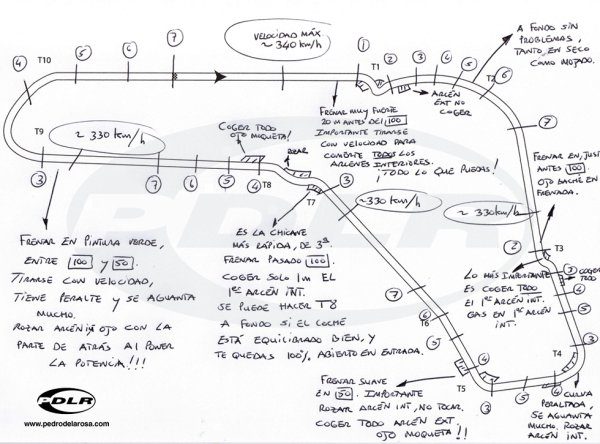 VELOCIDAD MÁX.
~ 340 km/h
A FONDO SIN
PROBLEMAS,
TANTO, EN SECO
COMO MOJADO.
T10
4
5
6
7
1
T1
2
3
4
5
T2
6
7
ARCÉN
EXT NO
COGER
FRENAR MUY FUERTE
20 m ANTES DEL 100
IMPORTANTE TIRARSE
CON VELOCIDAD PARA
COMERTE TODOS LOS
ARCENES INTERIORES.
¡TODO LO QUE PUEDAS!
COGER TODO
OJO MOQUETA!
ROZAR
T9
~ 330 km/h
3
7
6
5
4
T8
T7
3
~330 km/h
~ 330km/h
FRENAR EN, JUSTO
ANTES 100
OJO BACHE EN
FRENADA.
FRENAR EN PINTURA VERDE,
ENTRE 100 y 50.
TIRARSE CON VELOCIDAD,
TIENE PERALTE Y SE AGUANTA
MUCHO.
ROZAR ARCÉN INT OJO CON LA
PARTE DE ATRÁS AL PONER
LA POTENCIA!!!
ES LA CHICANE
MÁS RÁPIDA, DE 3ª
FRENAR PASADO 100.
COGER SOLO 1m EL
1er ARCÉN INT.
SE PUEDE HACER T8
A FONDO SI EL COCHE
ESTÁ EQUILIBRADO BIEN, Y
TE QUEDAS 100% ABIERTO EN ENTRADA.
2
T3
3
COGER
TODO
LO MÁS IMPORTANTE
ES COGER TODO
EL 1er ARCÉN INT.
GAS EN 1er ARCÉN
INT.
4
5
3
T4
4
5
7
6
T6
5
4
T5
3
FRENAR SUAVE
EN 50. IMPORTANTE
ROZAR ARCÉN INT, NO TOCAR.
COGER TODO ARCÉN EXT.
OJO MOQUETA!!
CURVA
PERALTADA,
SE AGUANTA
MUCHO. ROZAR
ARCÉN INT.
PDLR
PDLR
www.pedrodelarosa.com